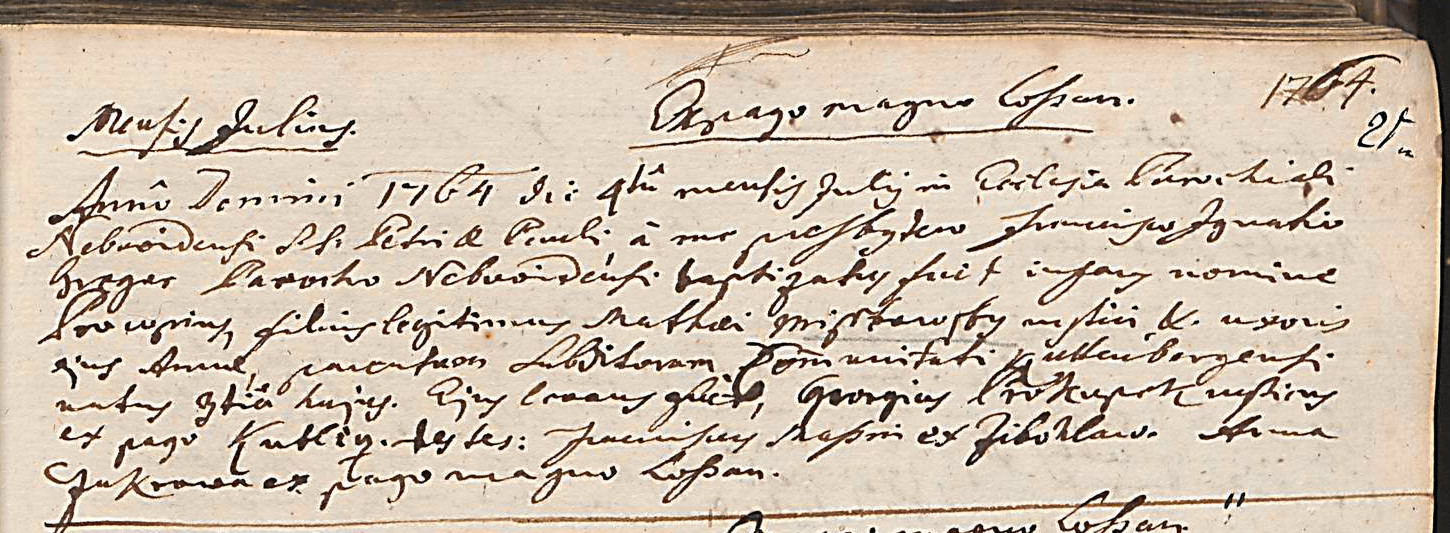 Mensis Julius. Ex pago magno Losan. 1764.
25
Anno Domini 1764 die 4tâ mensis Julij in Ecclesia Parochiali
Nebovidensi S.S. Petri & Pauli, â me presbytero Francisco Ignatio
Parocho Nebovidensi baptizatus fuit infans nomine
Procopius, filius legitimus Mathæi rustici &. uxoris
ejus Annæ, parentum subditorum Communitati Kuttenbergensi
natus 3tiâ hujus. Ejus levans fuit, Georgius Prokupek rusticus
ex pago Kutliř. testes: Franciscus Massin ex Zibohlav. Anna
ex pago magno Lossan.
magno Lossan.